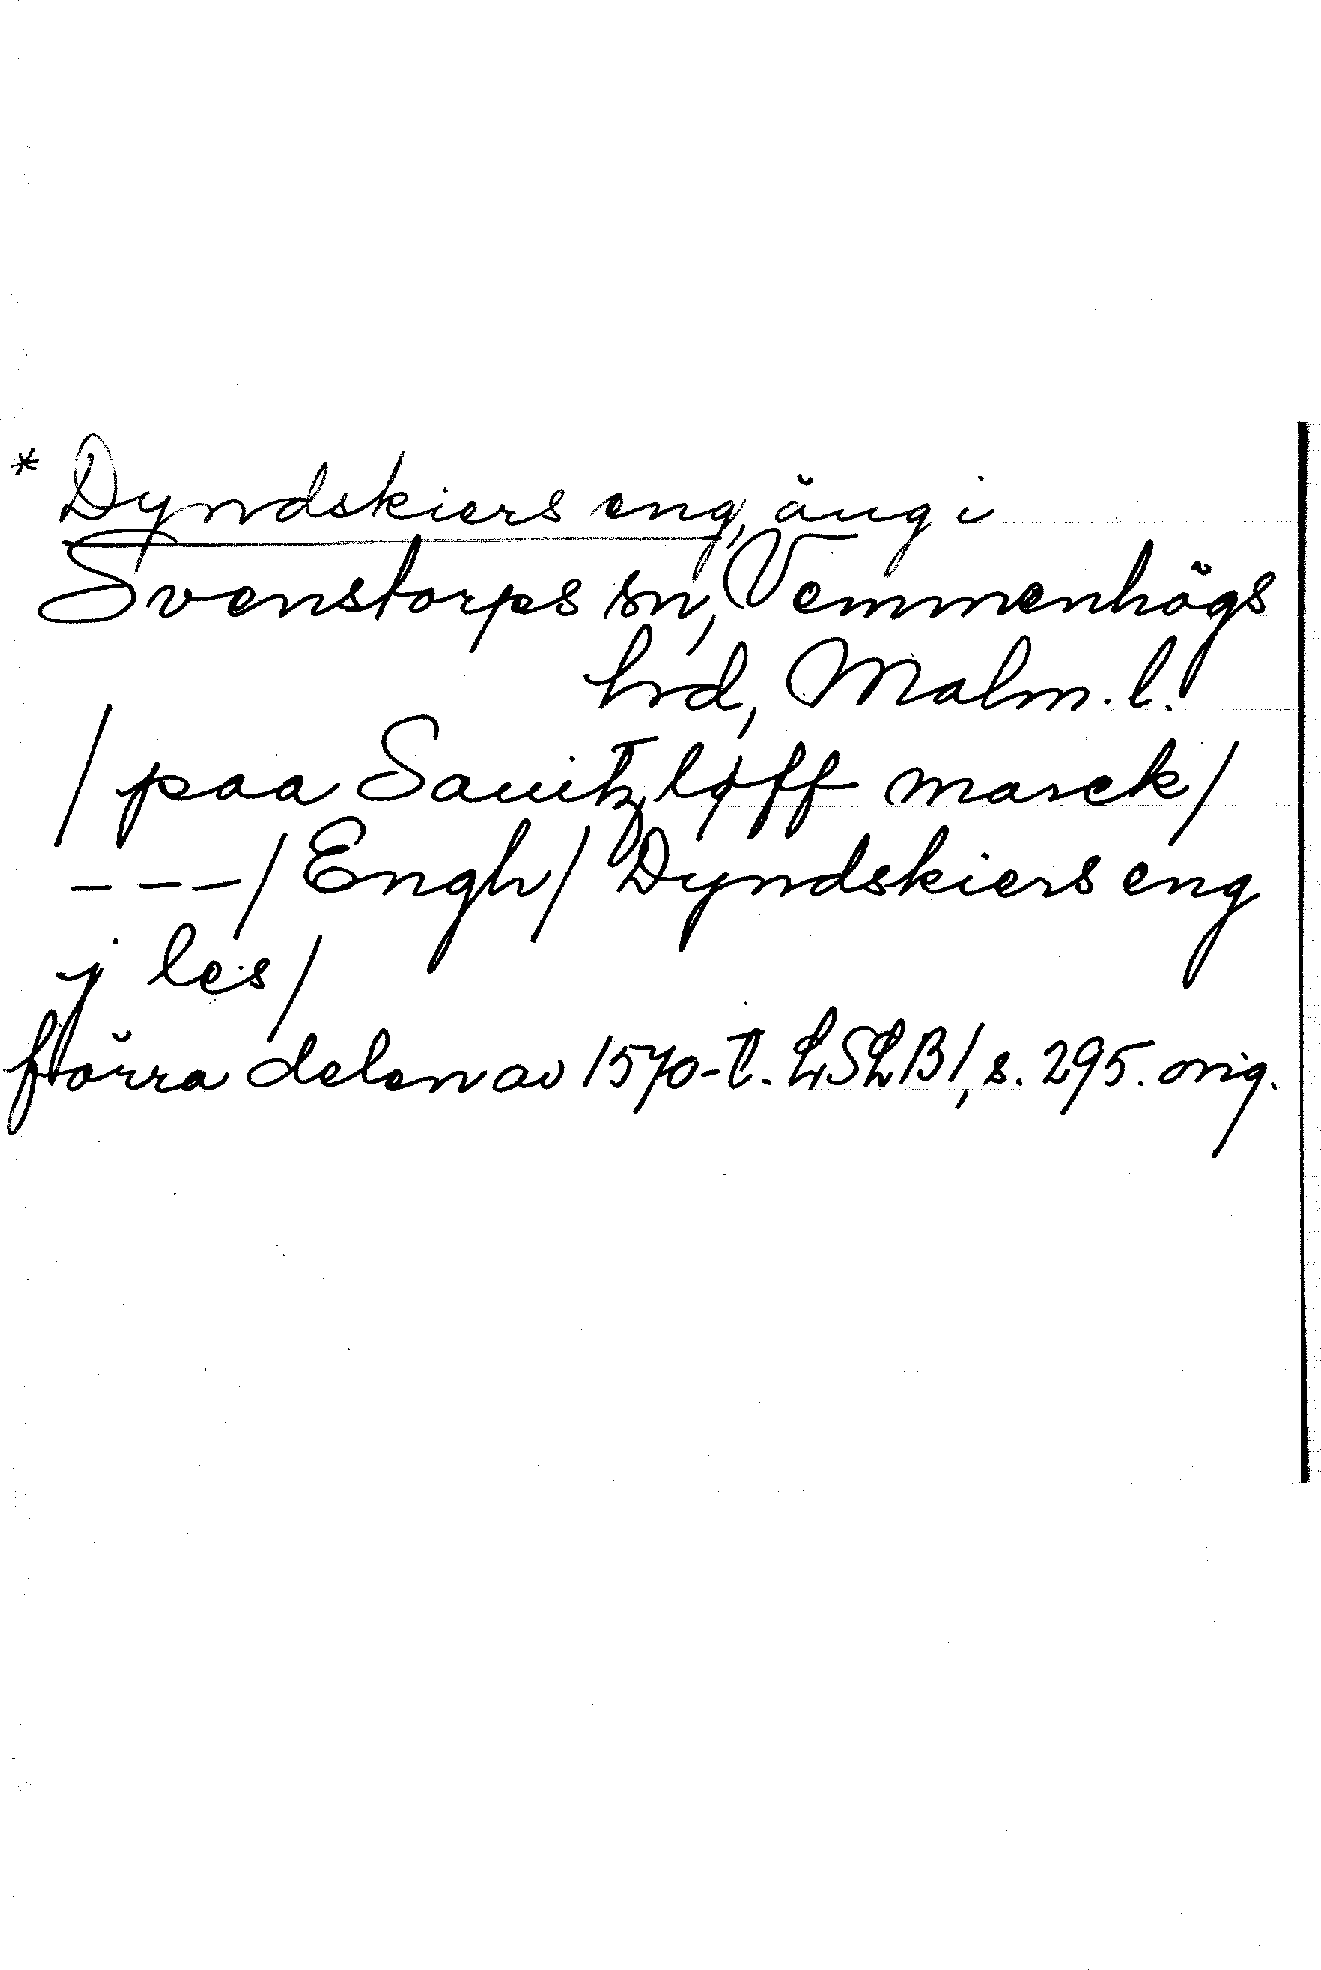 * Dyndskiers eng, äng i
Svenstorps sn, Vemmenhögs
hrd, Malm. l.
/ paa Sauitzløff marck /
--- / Engh / Dyndskiers eng
j les /
förra delen av 1570-t. LSLB 1, s. 295. orig.